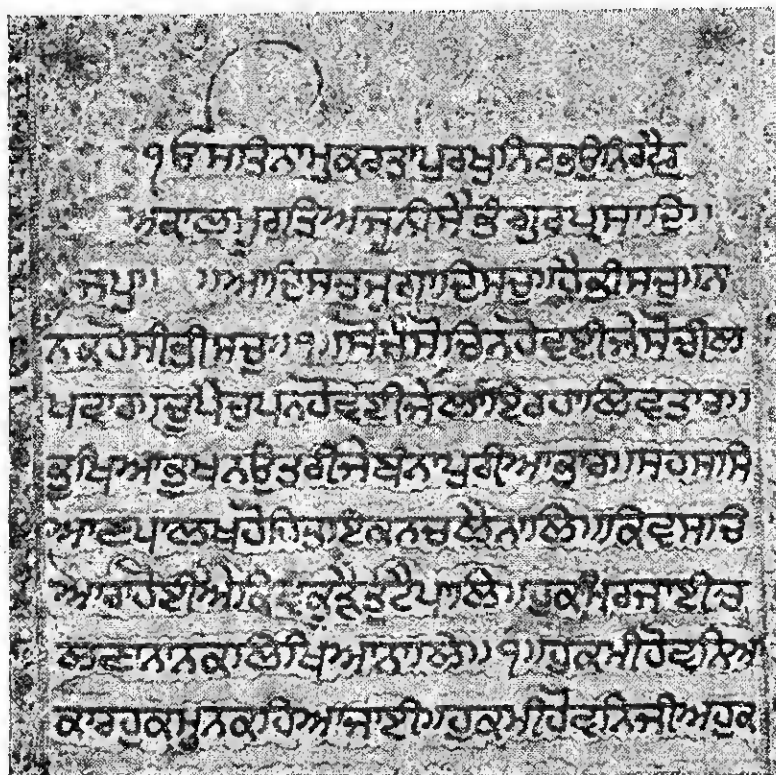 ੧ਓ ਸਤਿਨਾਮੁਕਰਤਾਪੁਰਖੁਨਿਰਭਉਨਿਰਵੈਰੁ
ਅਕਾਲਮੂਰਤਿਅਜੂਨੀਸੈਭੰਗੁਰਪ੍ਰਸਾਦਿ॥
ਜਪੁ॥ ॥ਆਦਿਸਚੁਜੁਗਾਦਿਸਚੁ॥ਹੈਭੀਸਚੁ॥ਨ
ਨਕਹੋਸੀਭੀਸਚੁ॥੧॥ਸੋਚੈਸੋਚਿਨਹੋਵਈਜੇਸੋਚੀਲਖ
ਖਵਾਰ॥ਚੁਪੈਚੁਪਨਹੋਵਈਜੇਲਾਇਰਹਾਲਿਵਤਾਰ॥
ਭੁਖਿਆਭੁਖਨਉਤਰੀਜੇਬੰਨਾਪੁਰੀਆਭਾਰ॥ਸਹਸਸਿ
ਆਣਪਲਖਹੋਹਿਤਾਇਕਨਚਲੈਨਾਲਿ॥ਕਿਵਸਚਿ
ਆਰਾਹੋਈਐਕਿਵਕੂੜੈਤੁਟੈਪਾਲਿ॥ਹੁਕਮਿਰਜਾਈਚ
ਲਣਾਨਨਕਾਲਿਖਿਆਨਾਲਿ॥੧॥ਹੁਕਮੀਹੋਵਨਿਆ
ਕਾਰਹੁਕਮੁਨਕਹਿਆਜਾਈ॥ਹੁਕਮੀਹੋਵਨਿਜੀਅਹੁਕ